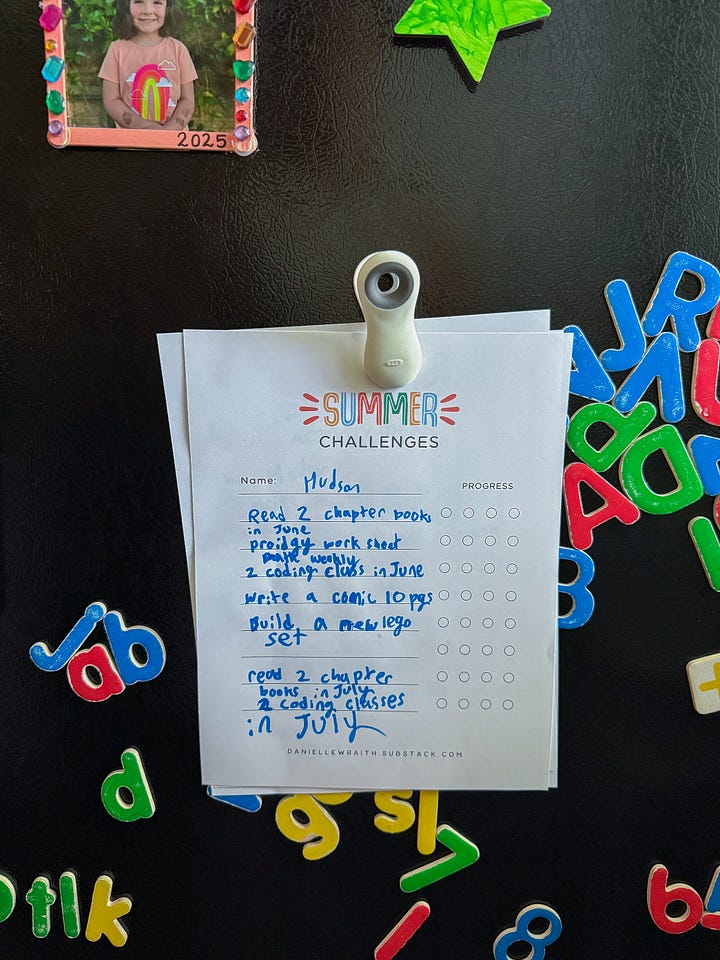 2025
SUMMER
CHALLENGES
Name: Hudson
PROGRESS
Read 2 chapter books
in June
proidgy work sheet
math weekly
2 coding class in June
write a comic 10 pgs
Build a new lego
set
read 2 chapter
books in July
2 coding classes
in July
DANIELLEWRAITH.SUBSTACK.COM
J R
d D
A
8
a b
d
g s l
t l k
8
b